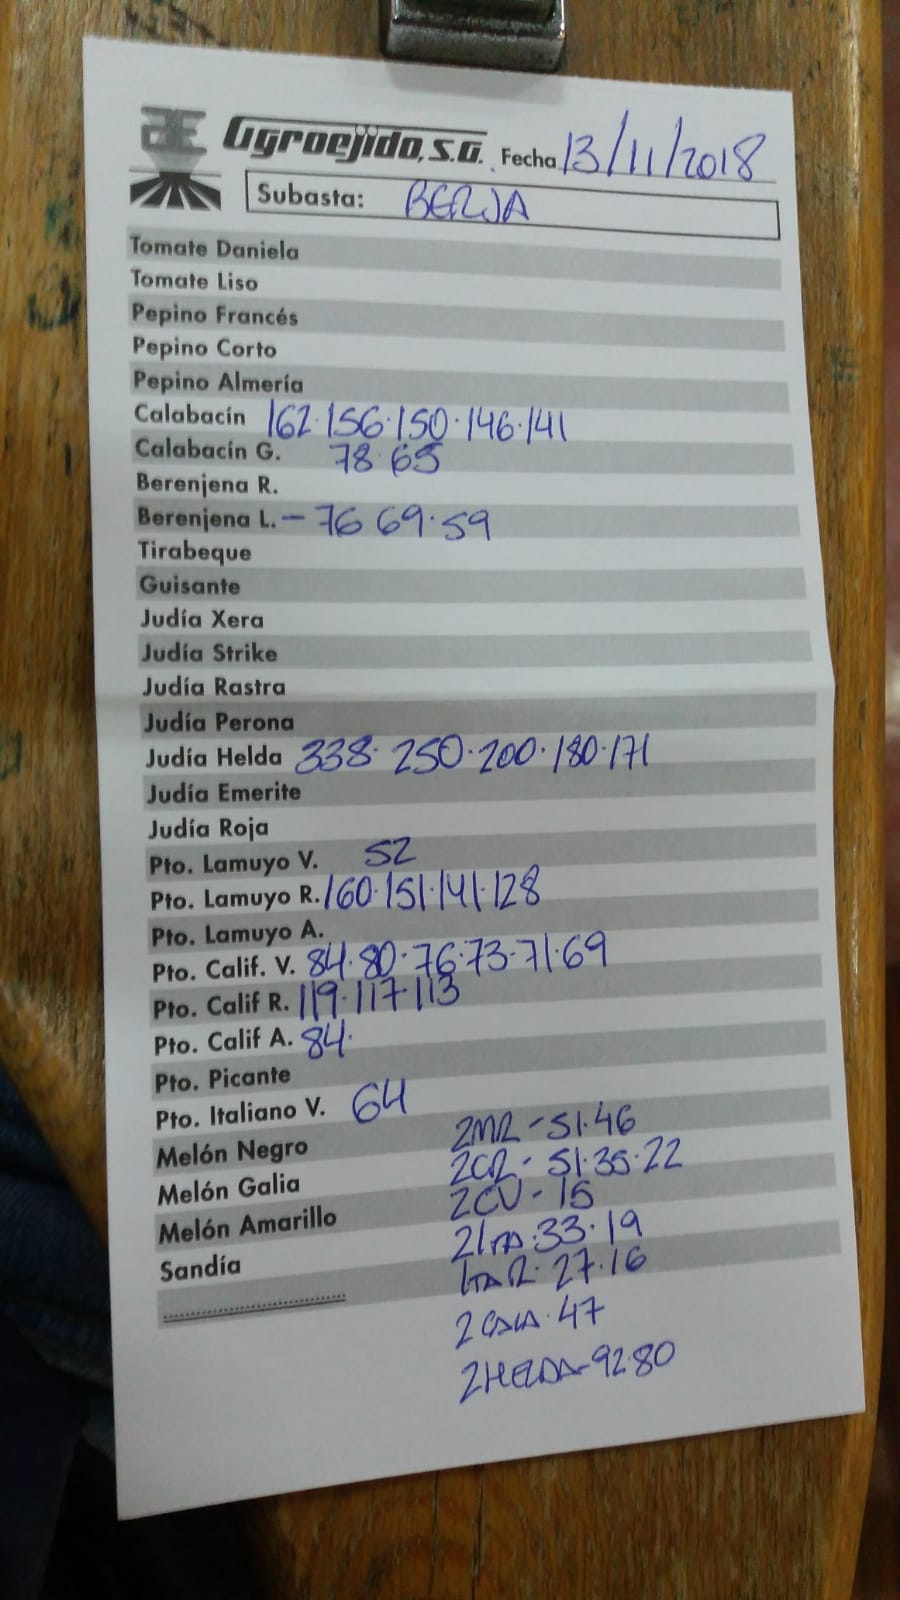 AE Agroejido, S.A. Fecha 13/11/2018
Subasta: BERJA
Tomate Daniela
Tomate Liso
Pepino Francés
Pepino Corto
Pepino Almería
Calabacín 162·156·150·146·141
Calabacín G. 78·65
Berenjena R.
Berenjena L. - 76 69·59
Tirabeque
Guisante
Judía Xera
Judía Strike
Judía Rastra
Judía Perona
Judía Helda 338·250·200·180·171
Judía Emerite
Judía Roja
Pto. Lamuyo V. 52
Pto. Lamuyo R. 160·151·141·128
Pto. Lamuyo A.
Pto. Calif. V. 84·80·76·73·71·69
Pto. Calif R. 119·117·113
Pto. Calif A. 84·
Pto. Picante
Pto. Italiano V. 64
Melón Negro
Melón Galia
Melón Amarillo
Sandía
2MR - 51·46
2CR - 51·35·22
2CV - 15
2ITA·33·19
ITA R·27·16
2CALA·47
2HELDA-92·80